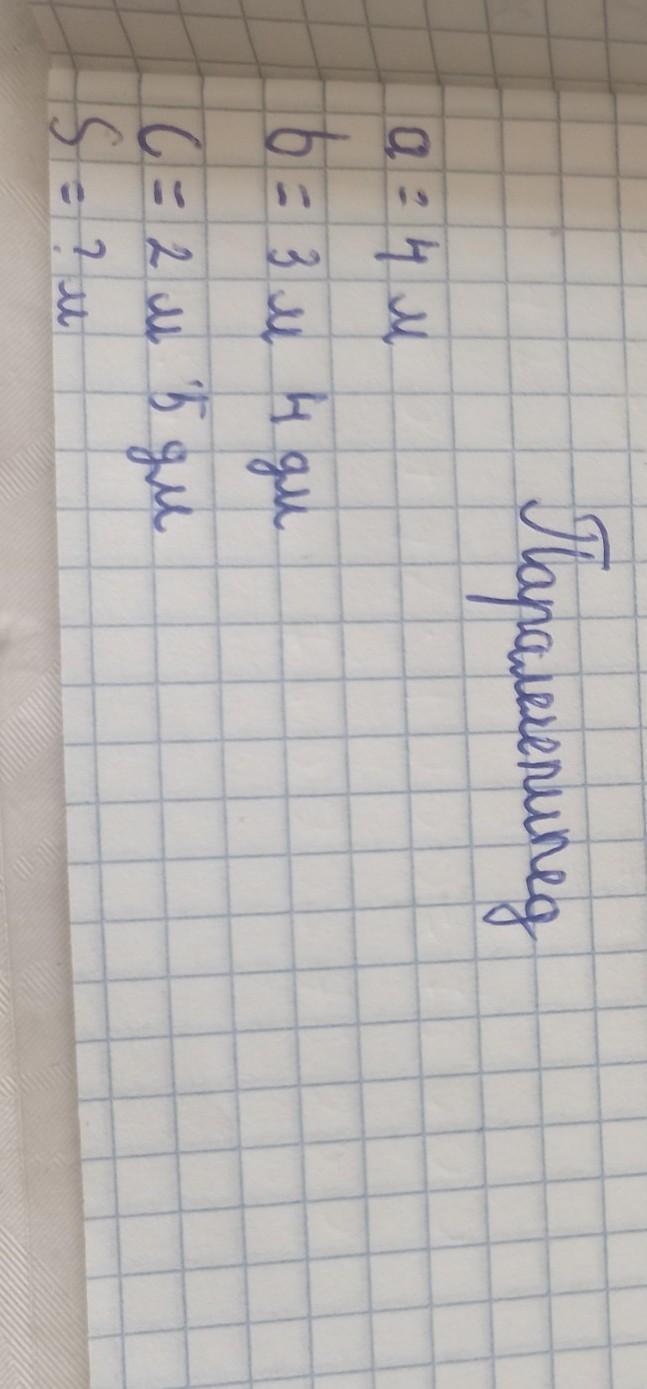 Паралелепипед
a = 4 м
b = 3 м 4 дм
c = 2 м 5 дм
S = ? м